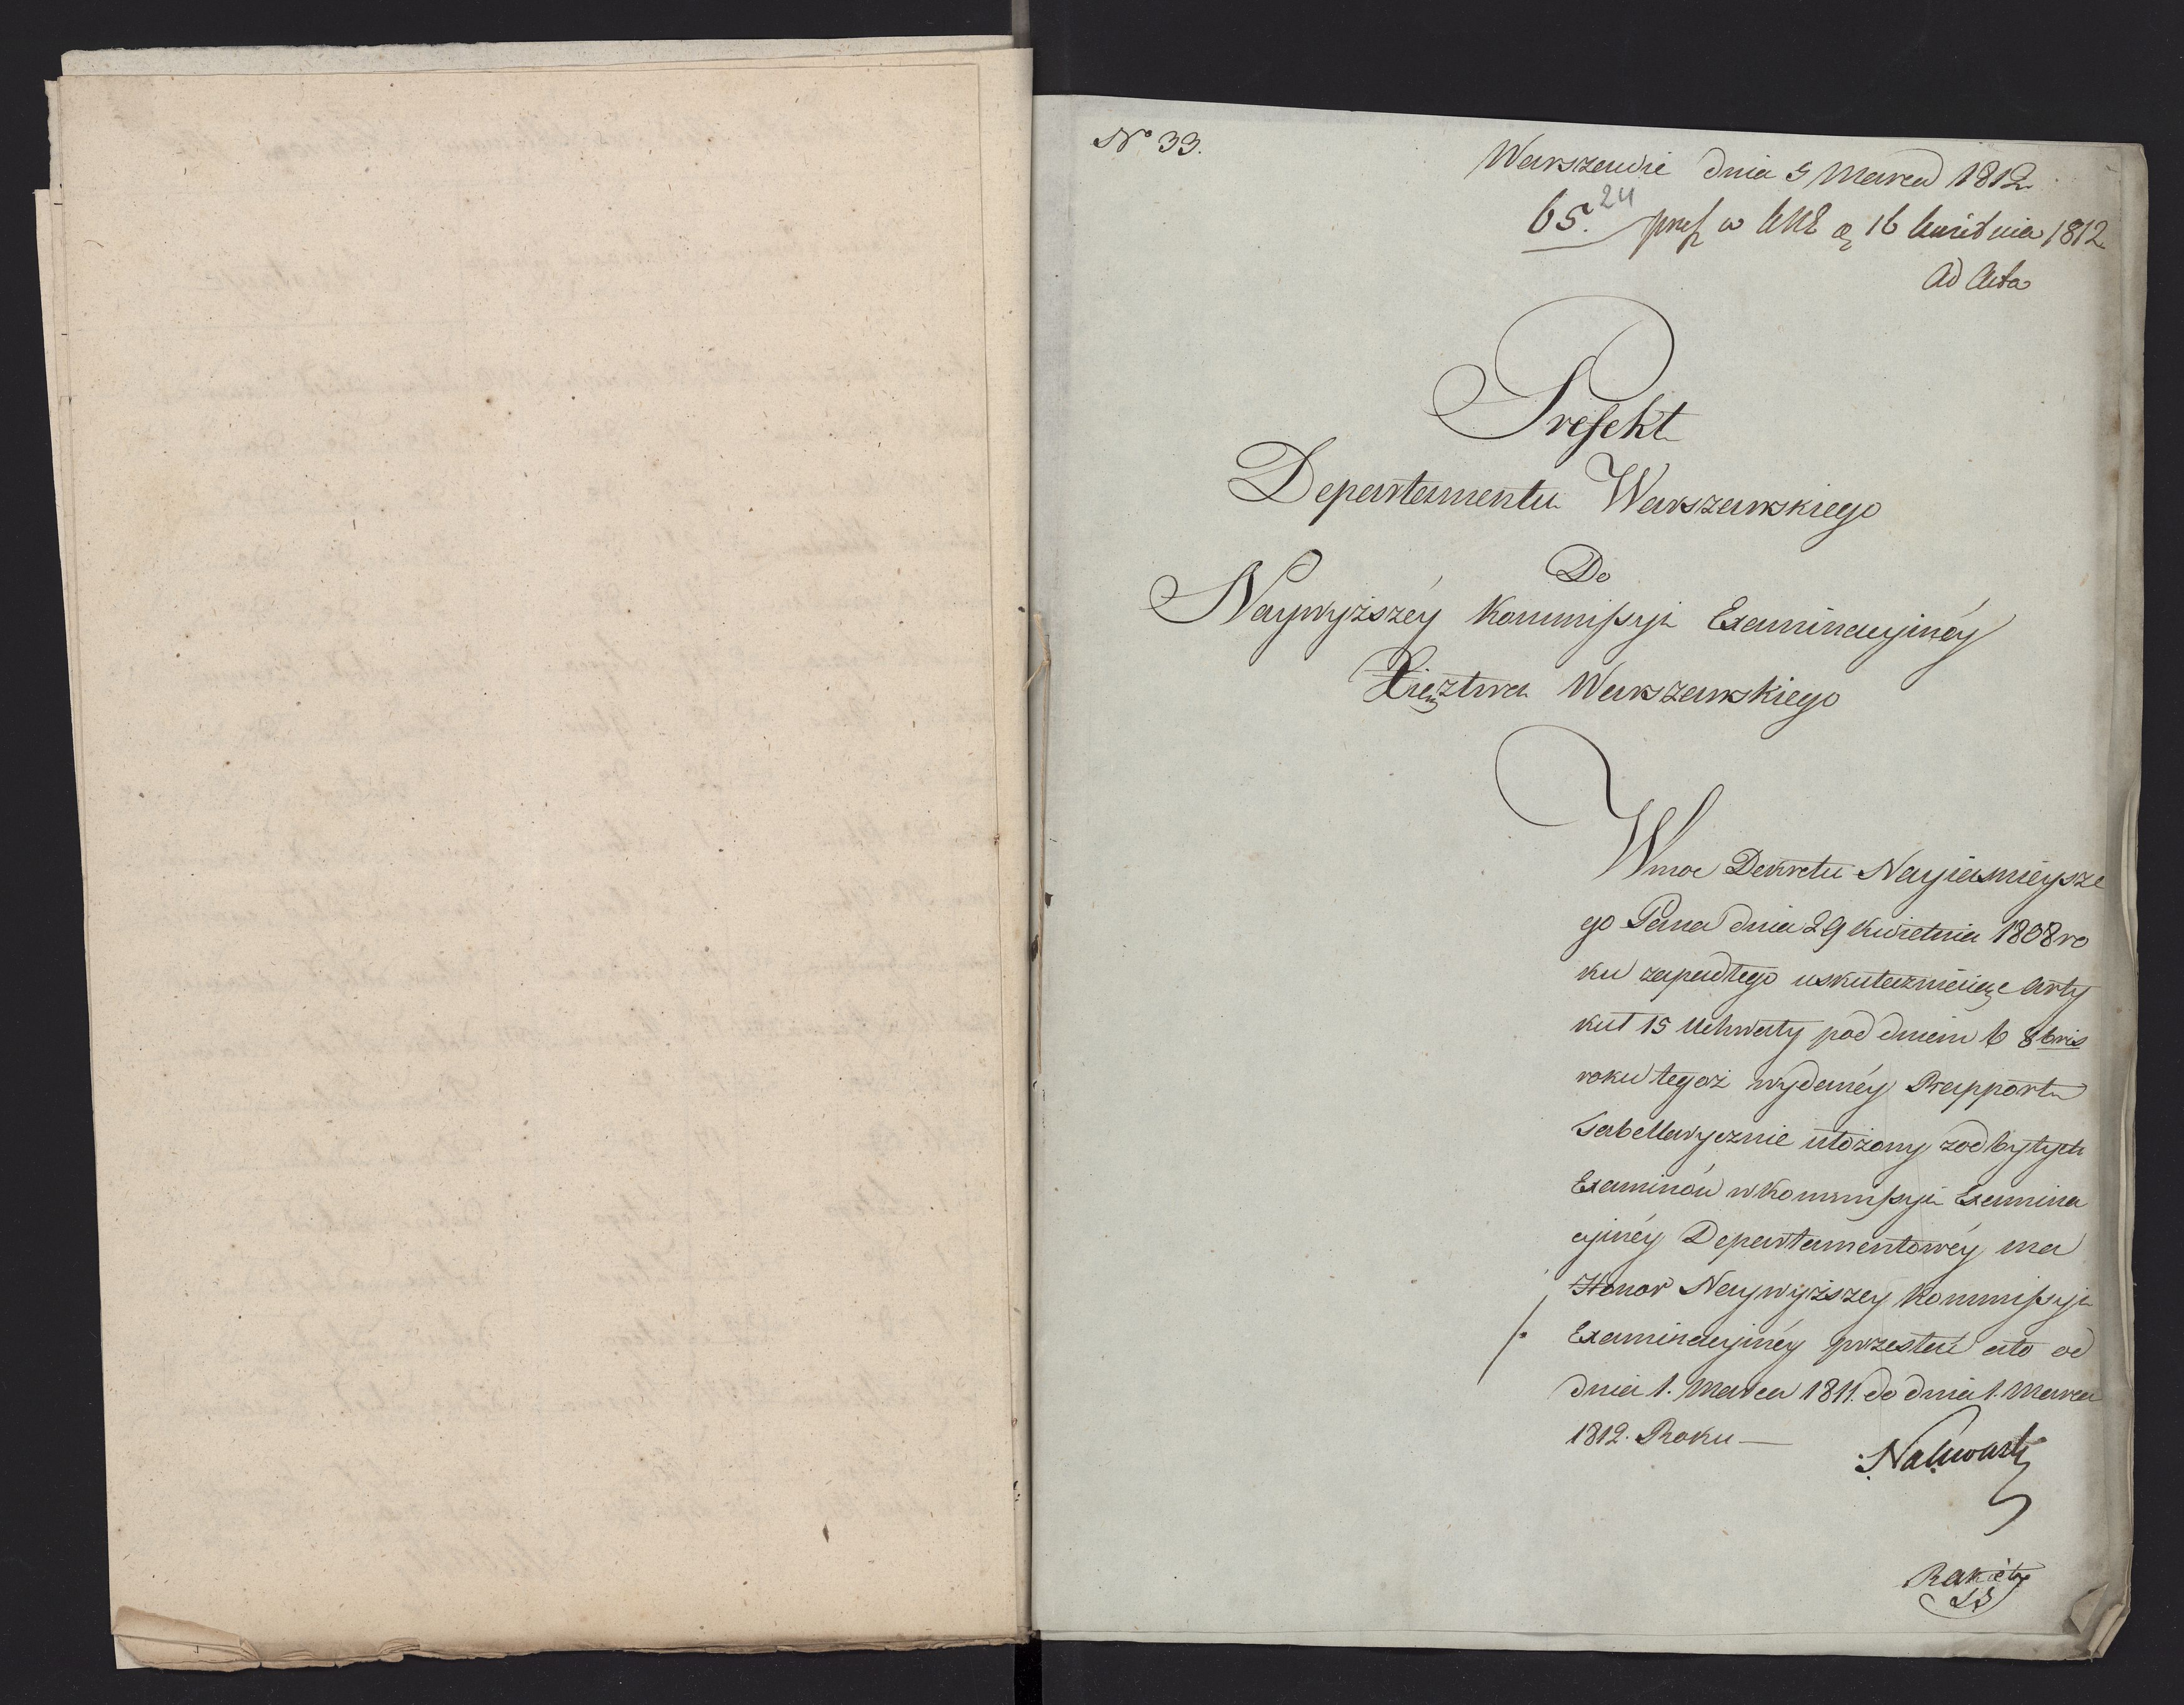 No 33.
Warszawie dnia 5 Marca 1812.
24
65. w 16 Kwietnia 1812
Ad Acta
Prefekt
Departamentu Warszawskiego
Do
Naywyższéy Kommissyi Examinacyinéy
Xięztwa Warszawskiego
W moc Dekretu Nayiasnieysze
go Pana dnia 29 Kwietnia 1808 ro
ku zapadłego uskuteczniaiąc Arty
kuł 15 Uchwały pod dniem 6 8bris
roku tegoż wydanéy Rapport
Tabellarycznie ułożony z odbytych
Examinów w Kommissyi Examina
cyinéy Departamentowéy ma
Honor Naywyższey Kommissyi
Examinacyinéy przesłać a to od
dnia 1. Marca 1811. do dnia 1. Marca
1812. Roku —
Nakwaski